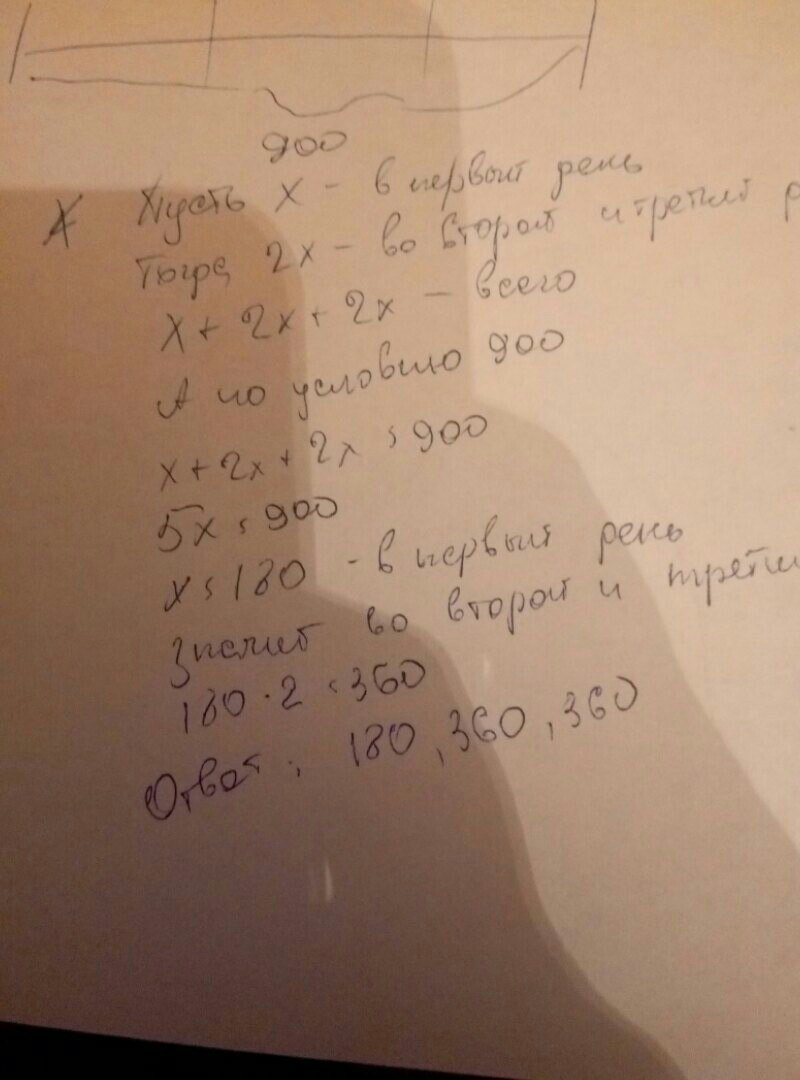 900
Пусть x - в первый день
Тогда 2x - во второй и третий
x + 2x + 2x - всего
А по условию 900
x + 2x + 2x = 900
5x = 900
x = 180 - в первый день
Значит во второй и трети
180 · 2 = 360
Ответ: 180, 360, 360